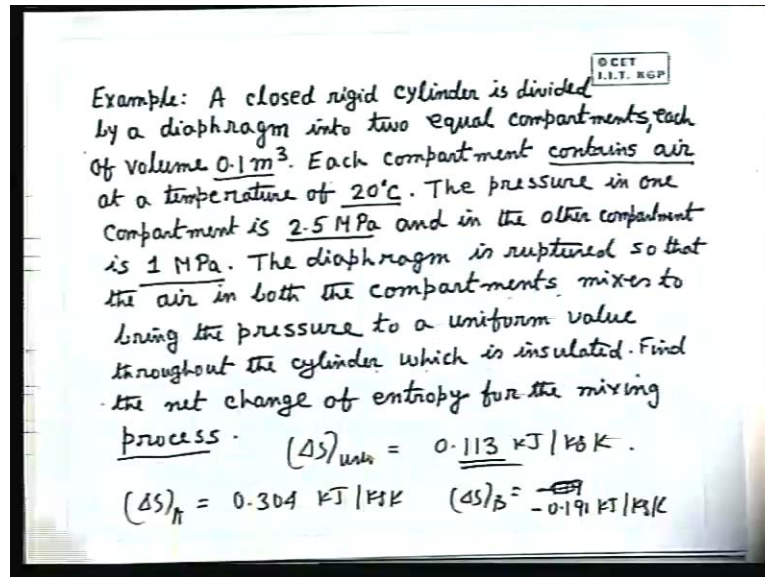 © CET
I.I.T. KGP
Example: A closed rigid cylinder is divided
by a diaphragm into two equal compartments, each
of volume 0.1 m³. Each compartment contains air
at a temperature of 20°C. The pressure in one
compartment is 2.5 MPa and in the other compartment
is 1 MPa. The diaphragm is ruptured so that
the air in both the compartments mixes to
bring the pressure to a uniform value
throughout the cylinder which is insulated. Find
the net change of entropy for the mixing
process. (ΔS)univ = 0.113 kJ/kgK.
(ΔS)A = 0.304 kJ/kgK (ΔS)B = -0.191 kJ/kgK